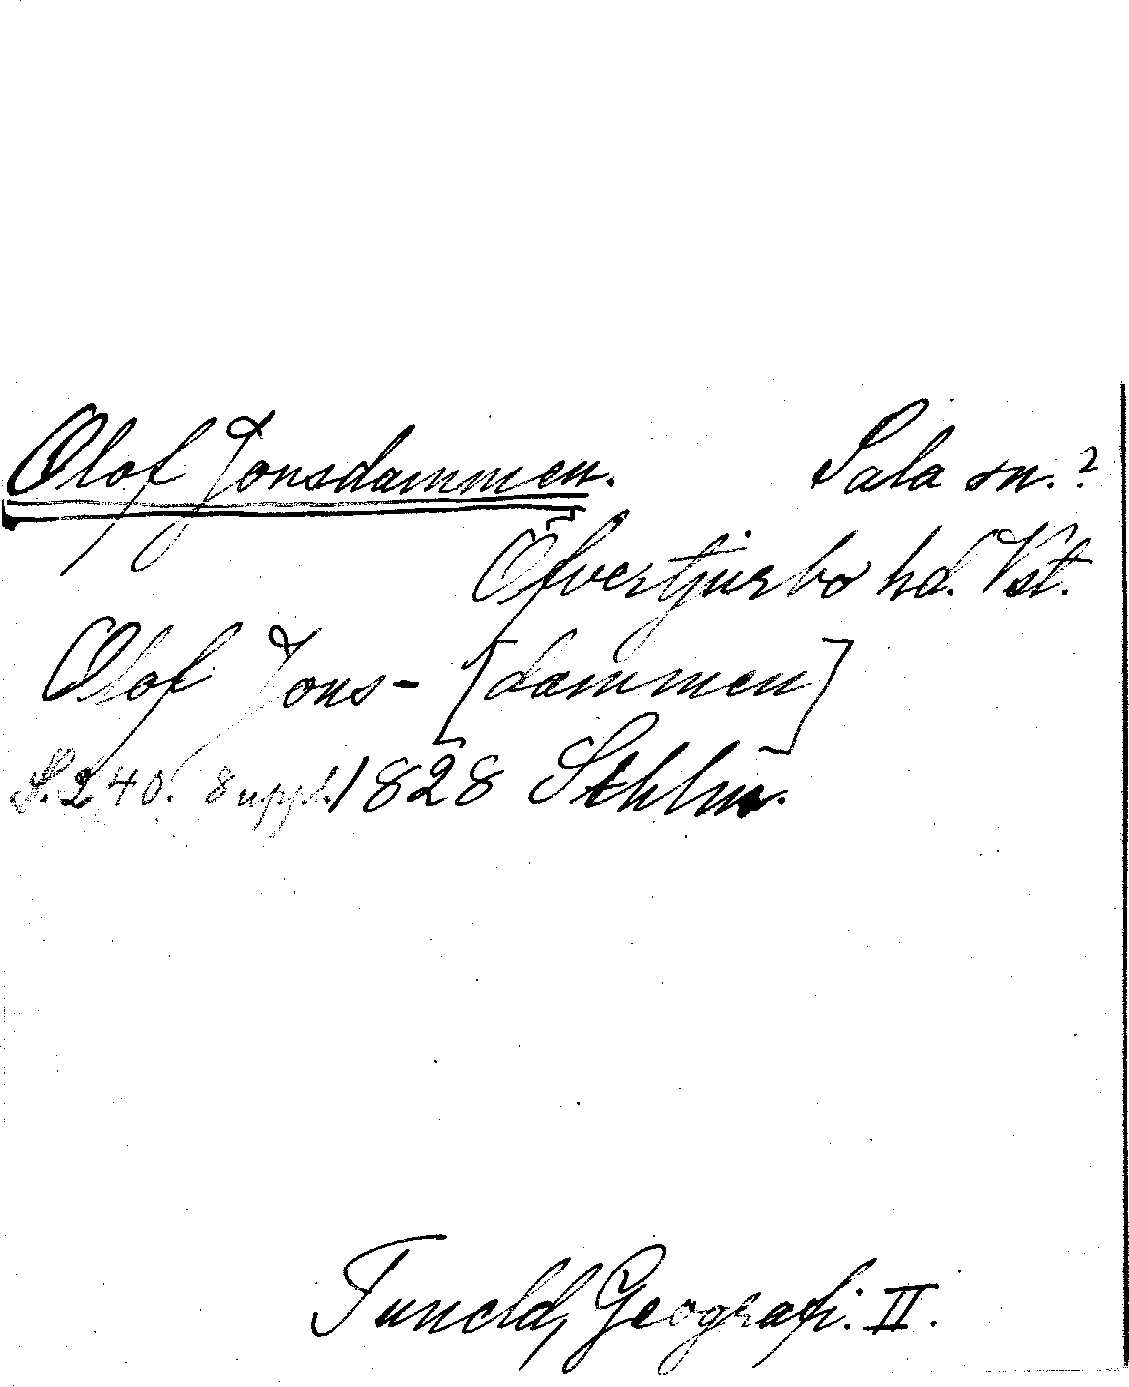 Olof Jonsdammen. Sala sn.?
Öfvertjurbo hd. Vst.
Olof Jons- [dammen]
S. 240. Suppl. 1828 Sthlm.
Tuneld, Geografi. II.